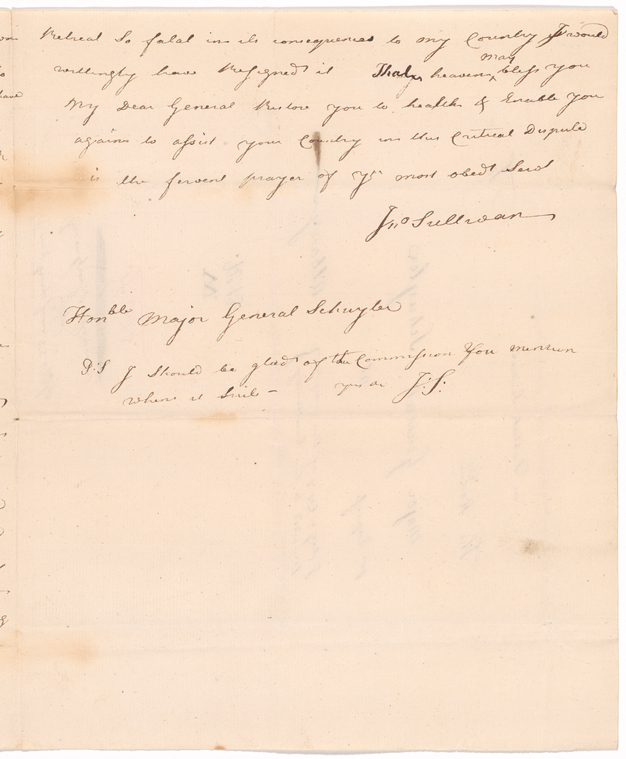 Retreat So fatal in its consequences to my Country I would
willingly have Resigned it That heaven may bless you
My Dear General Restore you to health & Enable you
again to assist your Country in this Critical Dispute
is the fervent prayer of yr most obedt Servt
Jno Sullivan
Honble Major General Schuyler
P:S I Should be glad of the Commission You mention
when it Suits – J:S: